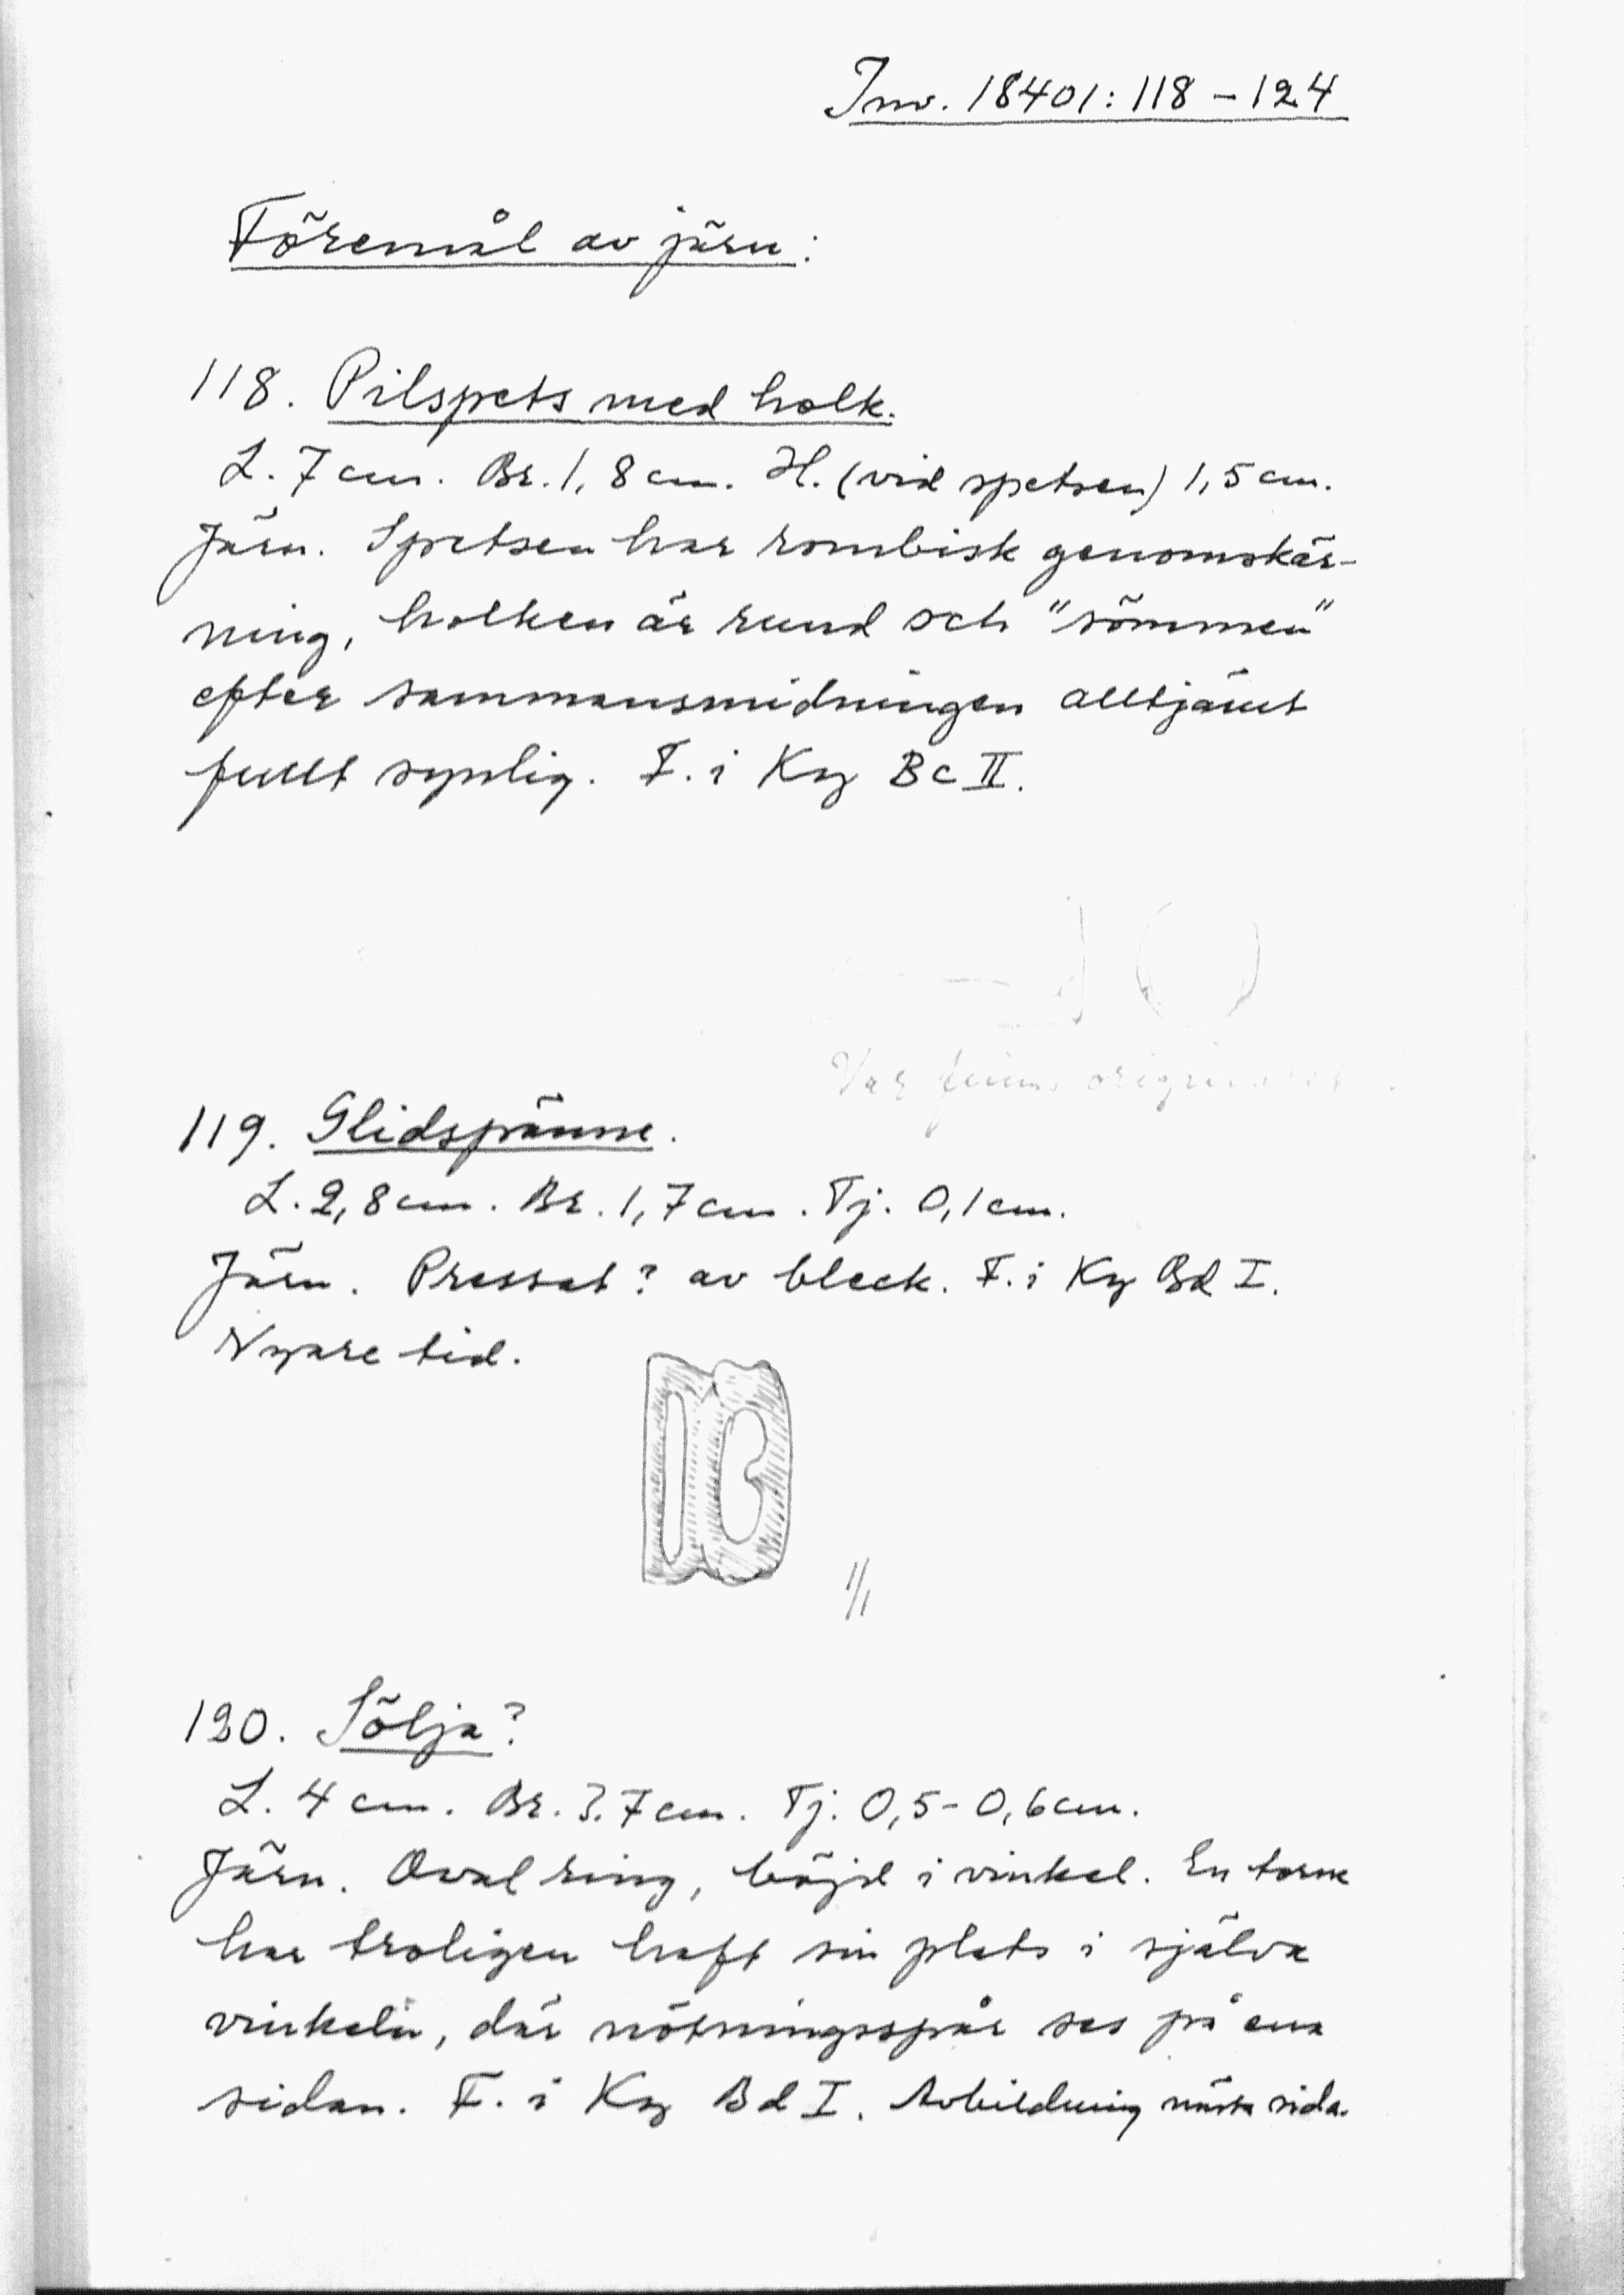 Inv. 18401:118-124
Föremål av järn:
118. Pilspets med holk.
L. 7 cm. Br. 1,8 cm. H. (vid spetsen) 1,5 cm.
Järn. Spetsen har rombisk genomskär-
ning, holken är rund och "sömmen"
efter sammansmidningen alltjämt
fullt synlig. F. i Ky Bc II.
Var finns originalet
119. Glidspänne.
L. 2,8 cm. Br. 1,7 cm. Tj. 0,1 cm.
Järn. Pressat? av bleck. F. i Ky Bd I.
Nyare tid.
1/1
120. Sölja?
L. 4 cm. Br. 3.7 cm. Tj. 0,5-0,6 cm.
Järn. Oval ring, böjd i vinkel. En torne
har troligen haft sin plats i själva
vinkeln, där nötningsspår ses på ena
sidan. F. i Ky Bd I. Avbildning nästa sida.